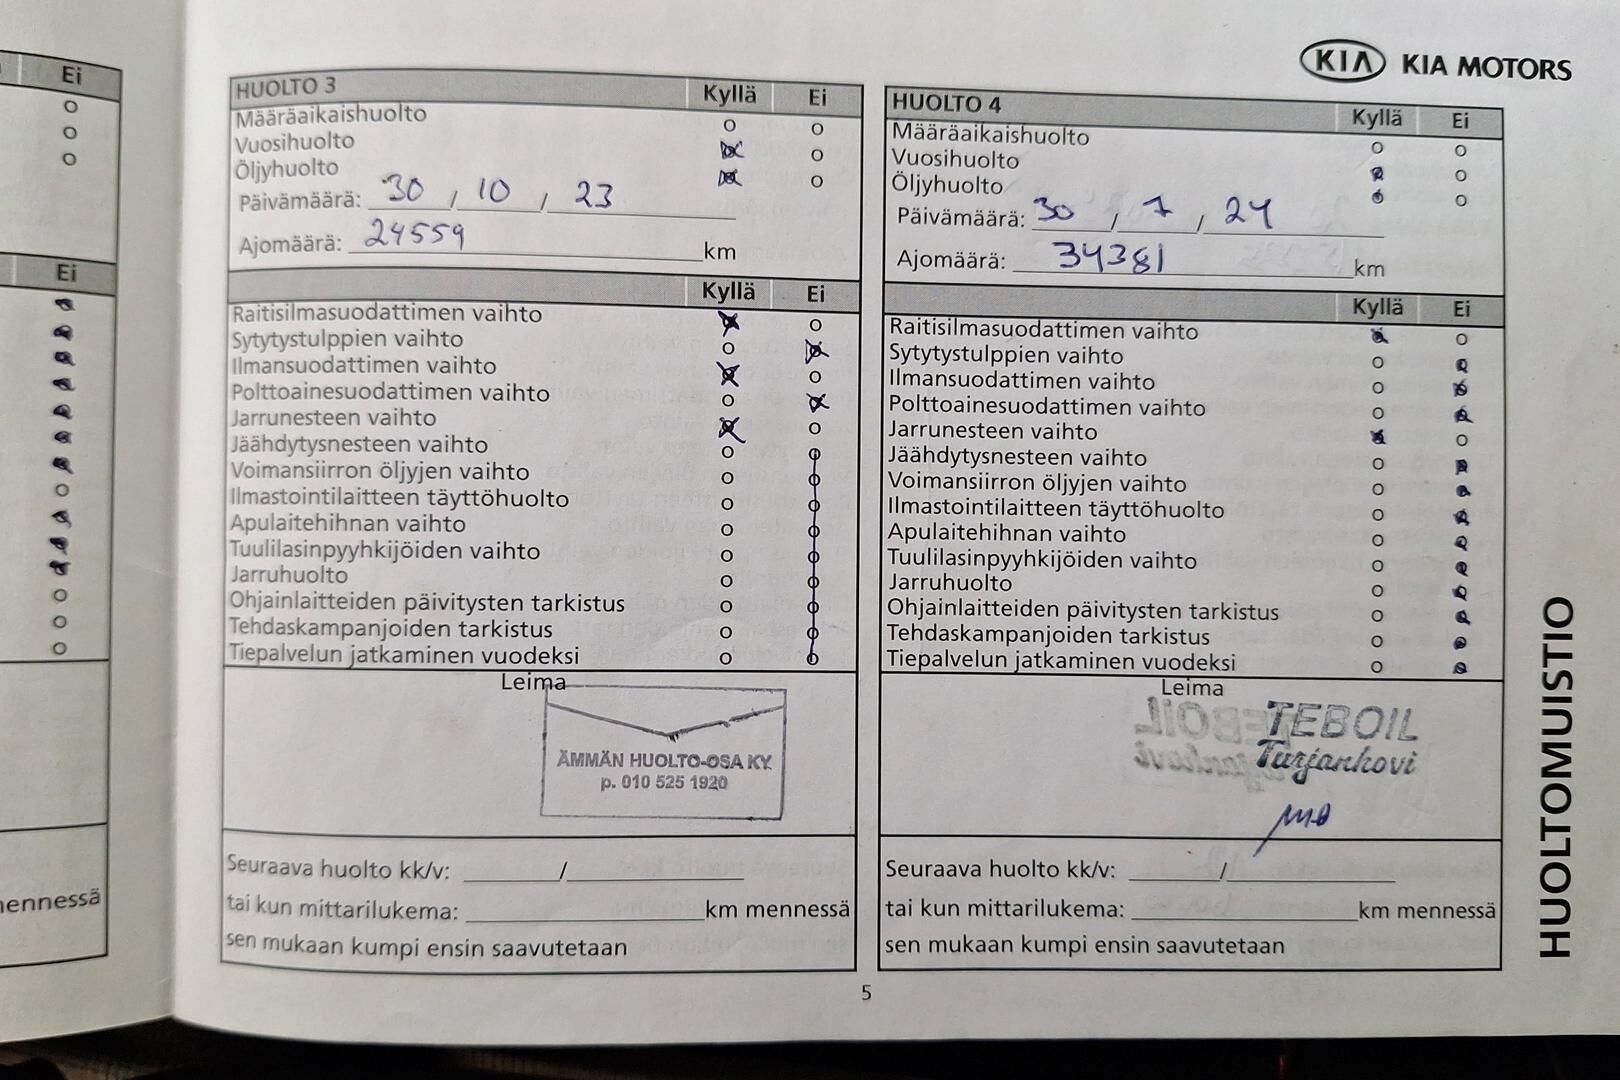 Ei
Ei
mennessä
KIA KIA MOTORS
HUOLTO 3 Kyllä Ei
Määräaikaishuolto
Vuosihuolto
Öljyhuolto
Päivämäärä: 30 / 10 / 23
Ajomäärä: 24559 km
Kyllä Ei
Raitisilmasuodattimen vaihto
Sytytystulppien vaihto
Ilmansuodattimen vaihto
Polttoainesuodattimen vaihto
Jarrunesteen vaihto
Jäähdytysnesteen vaihto
Voimansiirron öljyjen vaihto
Ilmastointilaitteen täyttöhuolto
Apulaitehihnan vaihto
Tuulilasinpyyhkijöiden vaihto
Jarruhuolto
Ohjainlaitteiden päivitysten tarkistus
Tehdaskampanjoiden tarkistus
Tiepalvelun jatkaminen vuodeksi
Leima
ÄMMÄN HUOLTO-OSA KY
p. 010 525 1920
Seuraava huolto kk/v: /
tai kun mittarilukema: km mennessä
sen mukaan kumpi ensin saavutetaan
HUOLTO 4 Kyllä Ei
Määräaikaishuolto
Vuosihuolto
Öljyhuolto
Päivämäärä: 30 / 7 / 24
Ajomäärä: 34381 km
Kyllä Ei
Raitisilmasuodattimen vaihto
Sytytystulppien vaihto
Ilmansuodattimen vaihto
Polttoainesuodattimen vaihto
Jarrunesteen vaihto
Jäähdytysnesteen vaihto
Voimansiirron öljyjen vaihto
Ilmastointilaitteen täyttöhuolto
Apulaitehihnan vaihto
Tuulilasinpyyhkijöiden vaihto
Jarruhuolto
Ohjainlaitteiden päivitysten tarkistus
Tehdaskampanjoiden tarkistus
Tiepalvelun jatkaminen vuodeksi
Leima
TEBOIL
Turjanhovi
Seuraava huolto kk/v: /
tai kun mittarilukema: km mennessä
sen mukaan kumpi ensin saavutetaan
5
HUOLTOMUISTIO